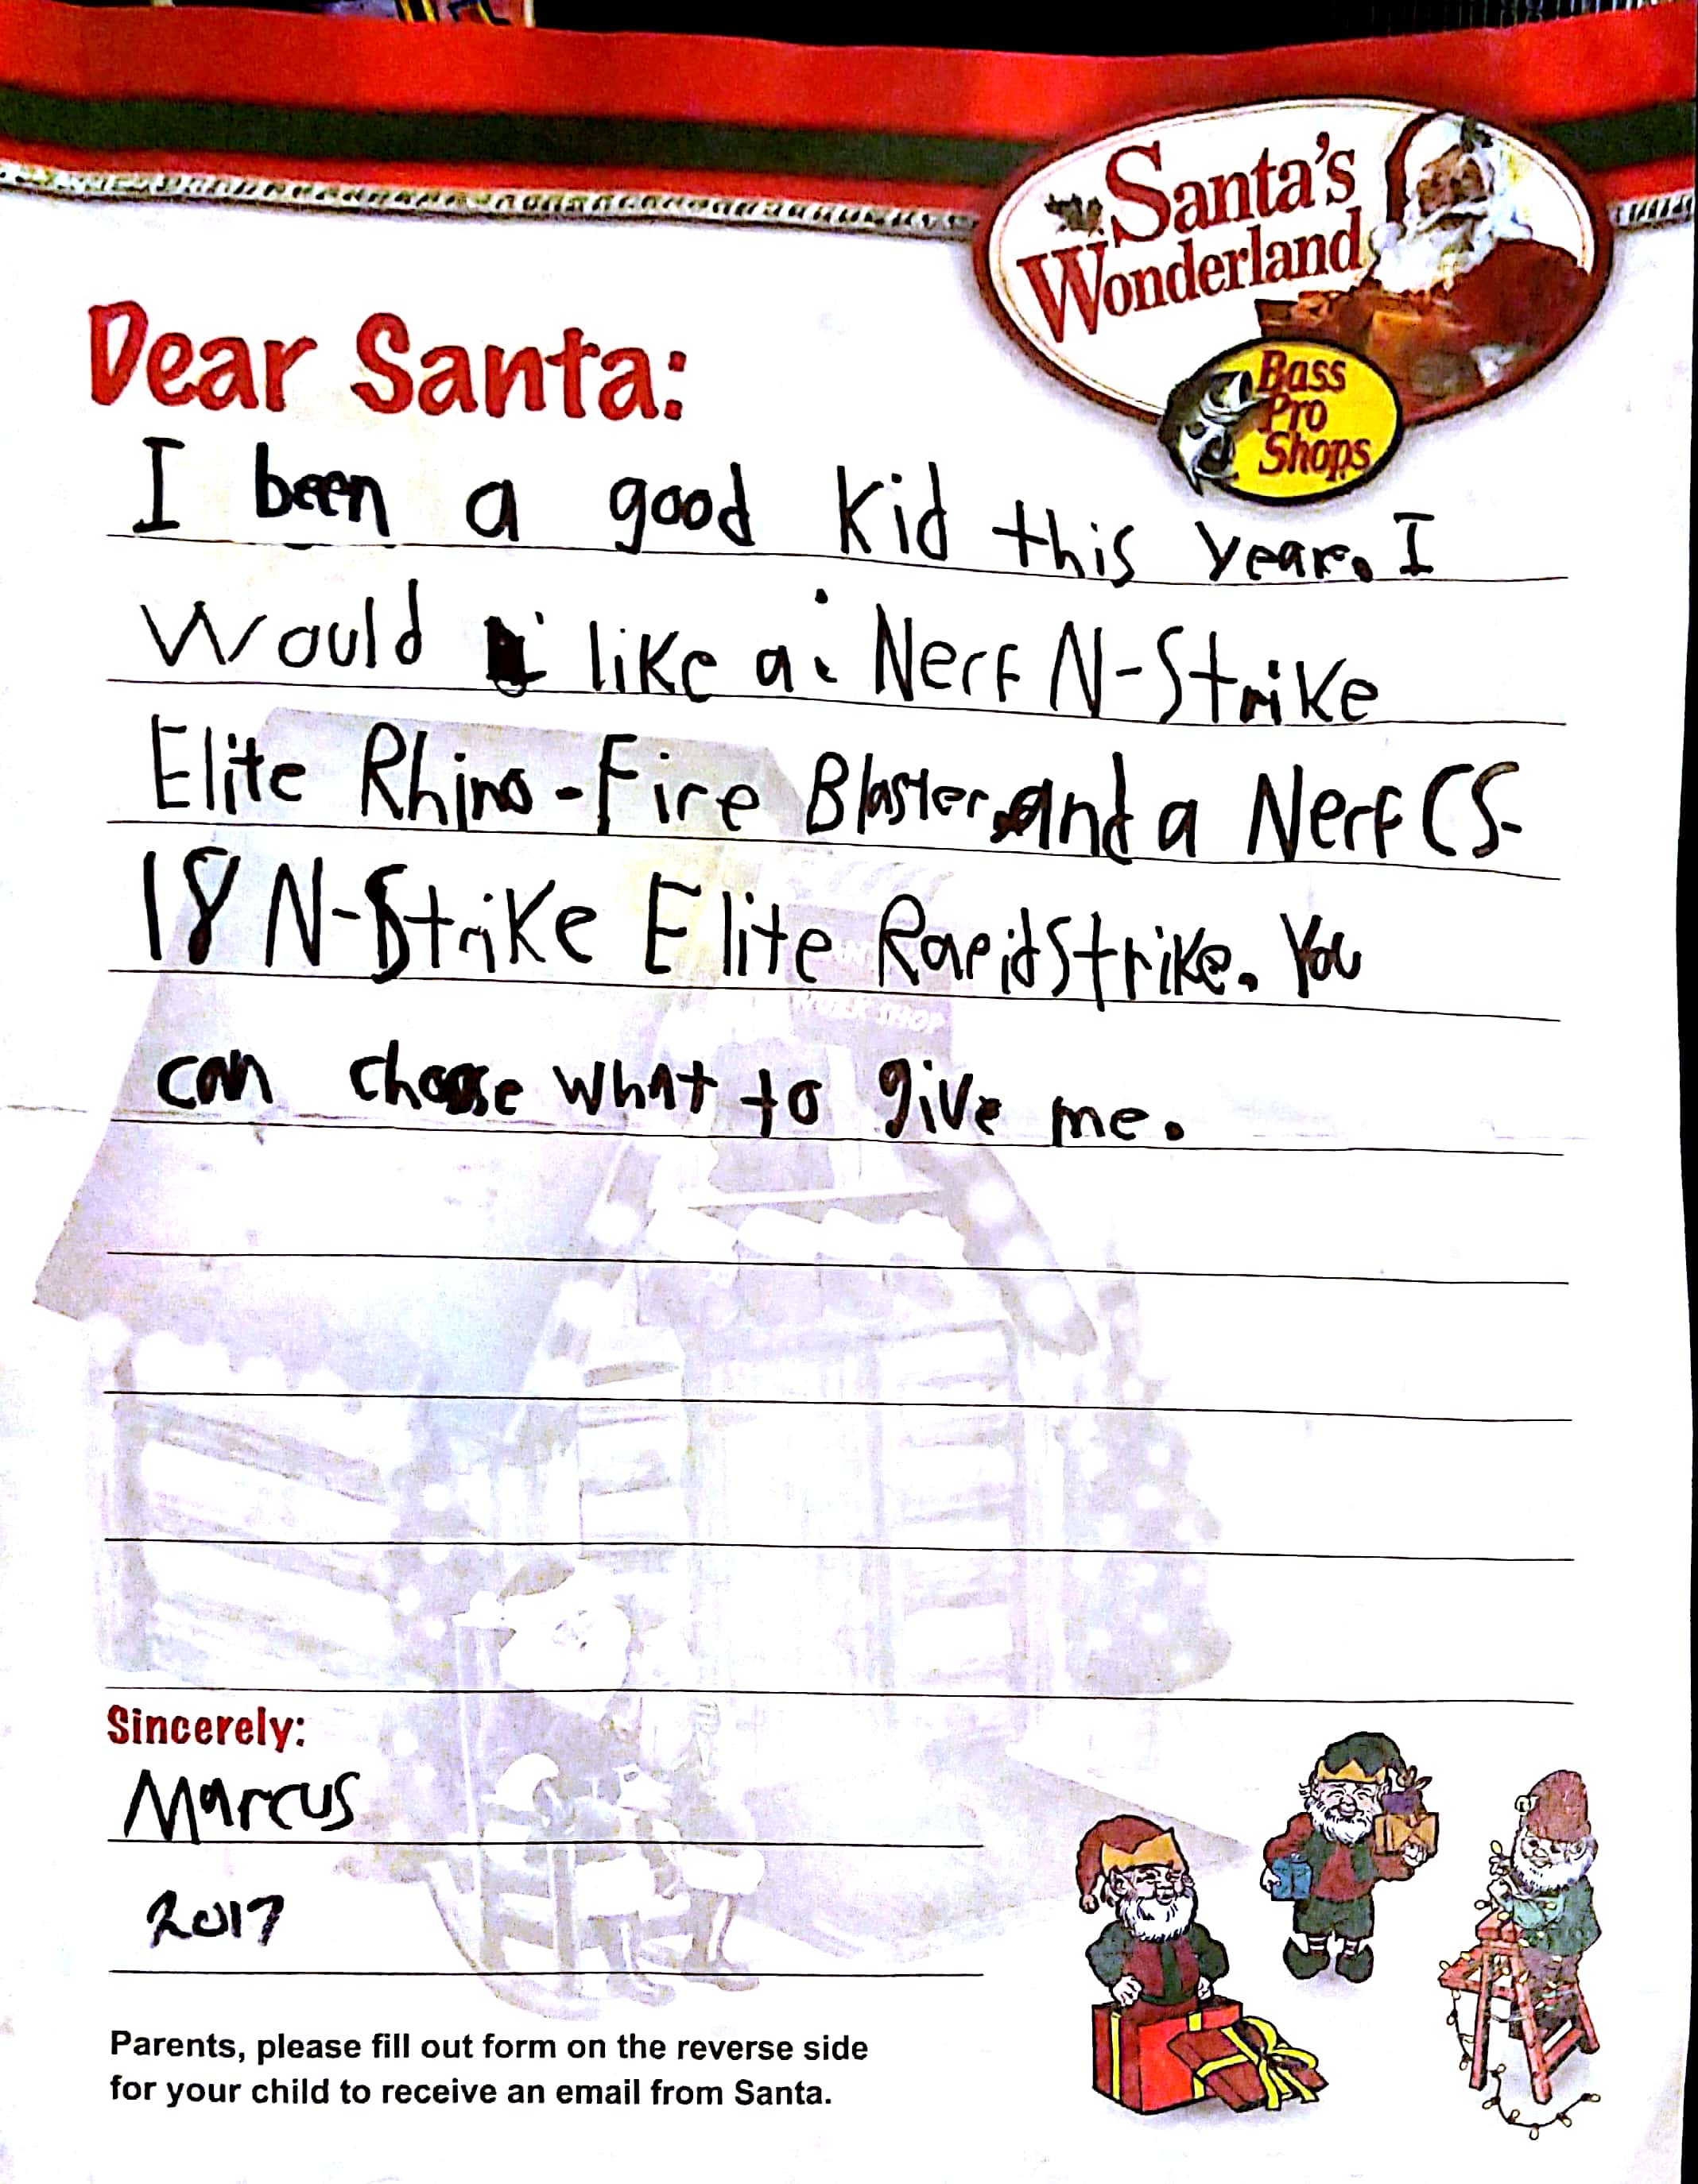 Santa's
Wonderland
Bass
Pro
Shops
Dear Santa:
I been a good kid this year. I
Would like a Nerf N-Strike
Elite Rhino-Fire Blaster and a Nerf CS-
18 N-Strike Elite Rapidstrike. You
can choose what to give me.
WORKSHOP
Sincerely:
Marcus
2017
Parents, please fill out form on the reverse side
for your child to receive an email from Santa.